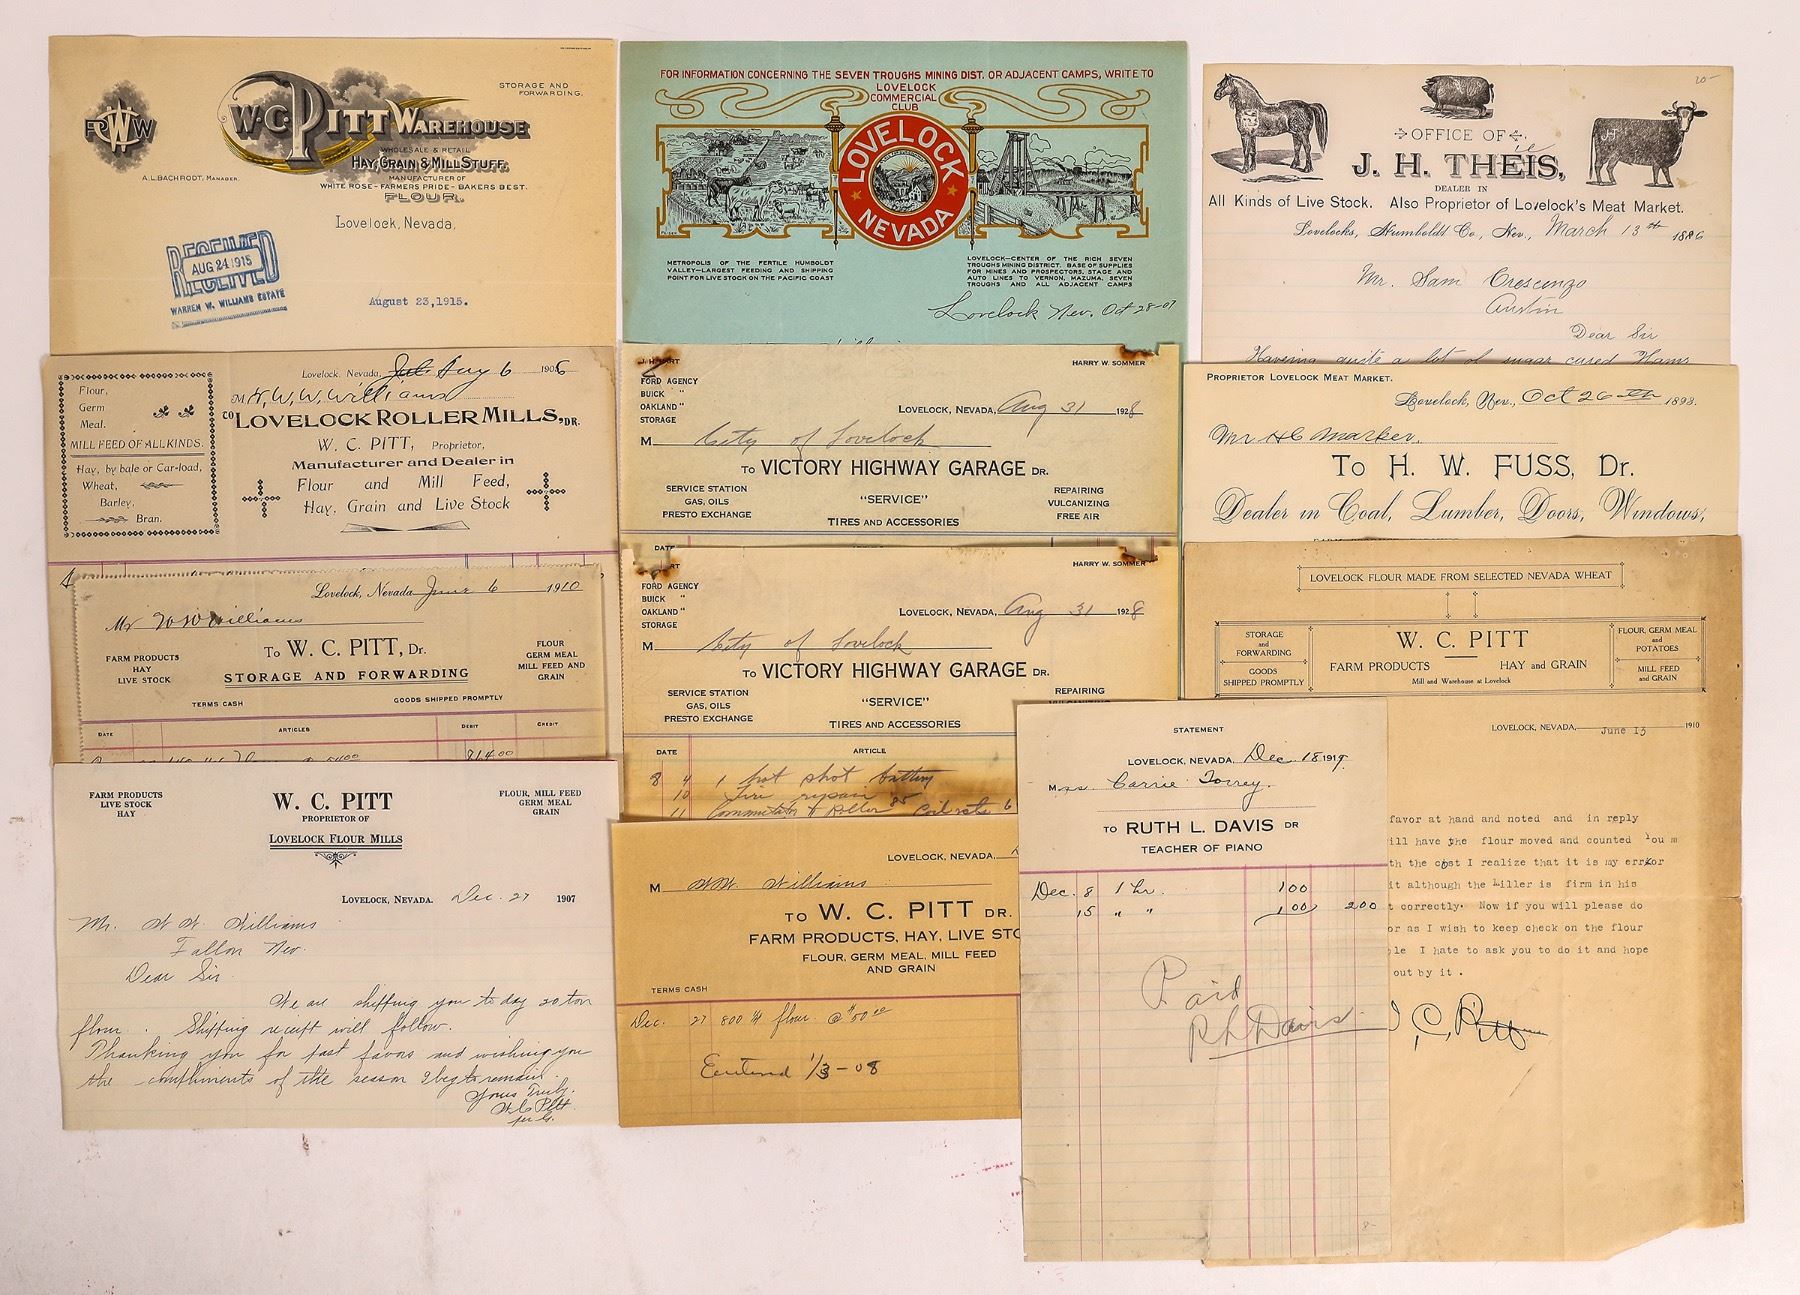 STORAGE AND
FORWARDING.
W.C. PITT WAREHOUSE
WHOLESALE & RETAIL
HAY, GRAIN & MILL STUFF.
MANUFACTURER OF
WHITE ROSE - FARMERS PRIDE - BAKERS BEST.
FLOUR.
A.L. BACHRODT, MANAGER.
Lovelock, Nevada,
RECEIVED
AUG 24 1915
WARREN W. WILLIAMS ESTATE
August 23, 1915.
FOR INFORMATION CONCERNING THE SEVEN TROUGHS MINING DIST. OR ADJACENT CAMPS, WRITE TO
LOVELOCK
COMMERCIAL
CLUB
LOVELOCK
NEVADA
METROPOLIS OF THE FERTILE HUMBOLDT
VALLEY—LARGEST FEEDING AND SHIPPING
POINT FOR LIVE STOCK ON THE PACIFIC COAST
LOVELOCK—CENTER OF THE RICH SEVEN
TROUGHS MINING DISTRICT. BASE OF SUPPLIES
FOR MINES AND PROSPECTORS, STAGE AND
AUTO LINES TO VERNON, MAZUMA, SEVEN
TROUGHS AND ALL ADJACENT CAMPS
Lovelock Nev. Oct 28-07
20-
OFFICE OF
J. H. THEIS,
DEALER IN
All Kinds of Live Stock. Also Proprietor of Lovelock's Meat Market.
Lovelocks, Humboldt Co., Nev., March 13th 1886
Mr. Sam Crescenzo
Austin
Dear Sir
Having quite a lot of sugar cured Hams
Lovelock, Nevada, Aug 6 1906
M r, W. W. Williams
Flour,
Germ
Meal.
MILL FEED OF ALL KINDS.
Hay, by bale or Car-load,
Wheat,
Barley,
Bran.
TO LOVELOCK ROLLER MILLS, DR.
W. C. PITT, Proprietor,
Manufacturer and Dealer in
Flour and Mill Feed,
Hay, Grain and Live Stock
HARRY W. SOMMER
FORD AGENCY
BUICK "
OAKLAND "
STORAGE
LOVELOCK, NEVADA, Aug 31 1928
M City of Lovelock
TO VICTORY HIGHWAY GARAGE DR.
SERVICE STATION
GAS, OILS
PRESTO EXCHANGE
"SERVICE"
TIRES AND ACCESSORIES
REPAIRING
VULCANIZING
FREE AIR
DATE
PROPRIETOR LOVELOCK MEAT MARKET.
Lovelock, Nev., Oct 26th 1893.
Mr H C Marker,
To H. W. FUSS, Dr.
Dealer in Coal, Lumber, Doors, Windows,
Lovelock, Nevada June 6 1910
Mr W W Williams
To W. C. PITT, Dr.
STORAGE AND FORWARDING
FARM PRODUCTS
HAY
LIVE STOCK
FLOUR
GERM MEAL
MILL FEED AND
GRAIN
TERMS CASH
GOODS SHIPPED PROMPTLY
DATE ARTICLES DEBIT CREDIT
HARRY W. SOMMER
FORD AGENCY
BUICK "
OAKLAND "
STORAGE
LOVELOCK, NEVADA, Aug 31 1928
M City of Lovelock
TO VICTORY HIGHWAY GARAGE DR.
SERVICE STATION
GAS, OILS
PRESTO EXCHANGE
"SERVICE"
TIRES AND ACCESSORIES
REPAIRING
DATE ARTICLE
8 4 1 hot shot battery
10 Tire repair
LOVELOCK FLOUR MADE FROM SELECTED NEVADA WHEAT
STORAGE
AND
FORWARDING
GOODS
SHIPPED PROMPTLY
W. C. PITT
FARM PRODUCTS HAY AND GRAIN
Mill and Warehouse at Lovelock
FLOUR, GERM MEAL
and
POTATOES
MILL FEED
and GRAIN
LOVELOCK, NEVADA, June 13 1910
favor at hand and noted and in reply
ill have the flour moved and counted You m
th the cost I realize that it is my error
it although the Miller is firm in his
t correctly. Now if you will please do
or as I wish to keep check on the flour
ble I hate to ask you to do it and hope
out by it.
C. Pitt
FARM PRODUCTS
LIVE STOCK
HAY
W. C. PITT
PROPRIETOR OF
LOVELOCK FLOUR MILLS
FLOUR, MILL FEED
GERM MEAL
GRAIN
LOVELOCK, NEVADA. Dec. 27 1907
Mr. W W Williams
Fallon Nev.
Dear Sir
We are shipping you to day 20 ton
flour. Shipping receipt will follow.
Thanking you for past favors and wishing you
the compliments of the season I beg to remain
Yours Truly.
W C Pitt
per G.
LOVELOCK, NEVADA,
M W.W. Williams
TO W. C. PITT DR.
FARM PRODUCTS, HAY, LIVE STO
FLOUR, GERM MEAL, MILL FEED
AND GRAIN
TERMS CASH
Dec. 27 800 # flour @
Entered 1/3-08
STATEMENT
LOVELOCK, NEVADA, Dec. 18 1919
Mrs. Carrie Torrey.
TO RUTH L. DAVIS DR
TEACHER OF PIANO
Dec. 8 1 hr. 1 00
15 " " 1 00 2 00
Paid
R L Davis
8-